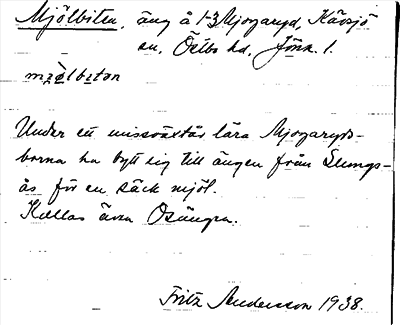 Mjölbiten, äng å 1-3 Mjogaryd, Kävsjö
sn, Östbo hd, Jönk. l.
mjö̀lbitən
Under ett missväxtår lära Mjogaryds-
borna ha bytt sig till ängen från Slungs-
ås för en säck mjöl.
Kallas även Osängen.
Fritz Andersson 1938.